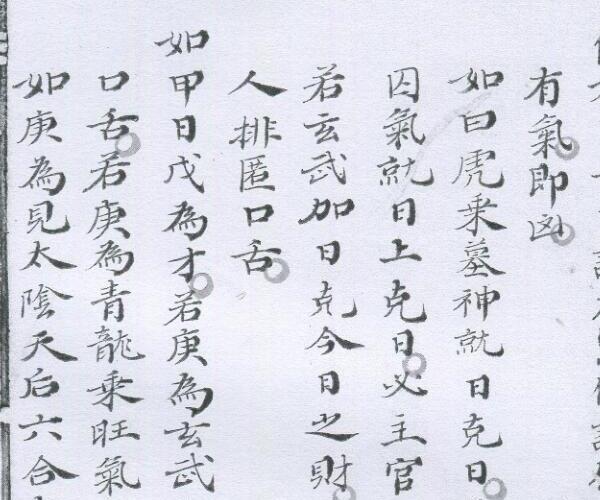 有氣即凶
如白虎乘墓神就日克日
囚氣就日上克日必主官
若玄武加日克今日之財
人排匿口舌
如甲日戊為才若庚為玄武
口舌若庚為青龍乘旺氣
如庚為見太陰天后六合